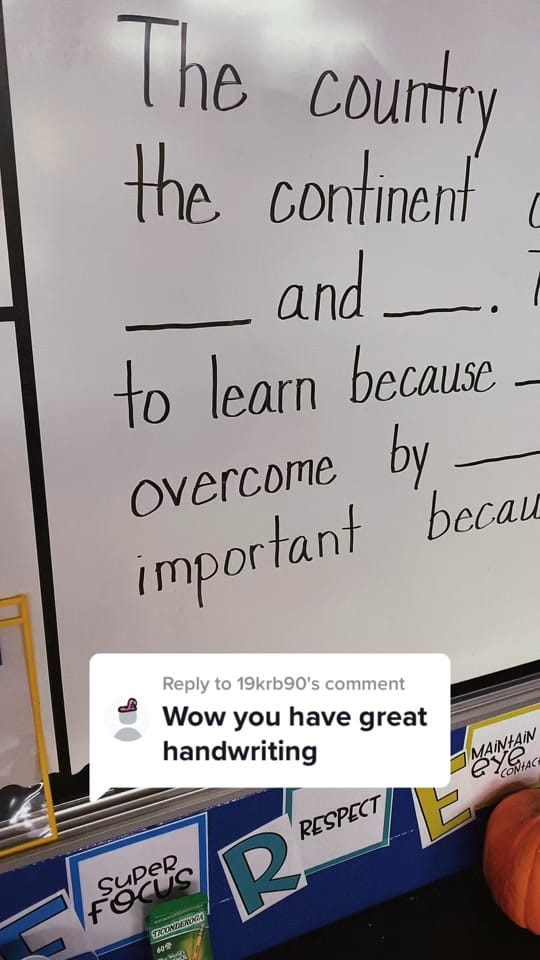 The country
the continent
___ and ___.
to learn because
overcome by ___
important
Reply to 19krb90's comment
Wow you have great
handwriting
MAINTAIN
eye
CONTACT
RESPECT
E
R
SUPER
FOCUS
TICONDEROGA
60